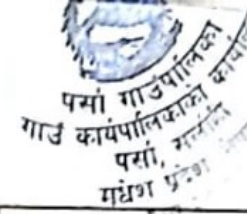 पर्सा गाउँपालिका
गाउँ कार्यपालिकाको कार्या
पर्सा, सर्लाही
मधेश प्रदेश